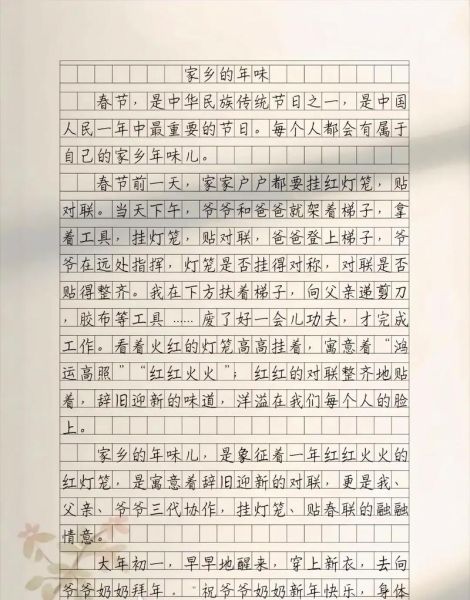 家乡的年味
春节，是中华民族传统节日之一，是中国
人民一年中最重要的节日。每个人都会有属于
自己的家乡年味儿。
春节前一天，家家户户都要挂红灯笼，贴
对联。当天下午，爷爷和爸爸就架着梯子，拿
着工具，挂灯笼，贴对联，爸爸登上梯子，爷
爷在远处指挥，灯笼是否挂得对称，对联是否
贴得整齐。我在下方扶着梯子，向父亲递剪刀
，胶布等工具……废了好一会儿功夫，才完成
工作。看着火红的灯笼高高挂着，寓意着“鸿
运高照”“红红火火”；红红的对联整齐地贴
着，辞旧迎新的味道，洋溢在我们每个人的脸
上。
家乡的年味儿，是象征着一年红红火火的
红灯笼，是寓意着辞旧迎新的对联，更是我、
父亲、爷爷三代协作，挂灯笼、贴春联的融融
情意。
大年初一，早早地醒来，穿上新衣，去向
爷爷奶奶拜年。“祝爷爷奶奶新年快乐，身体